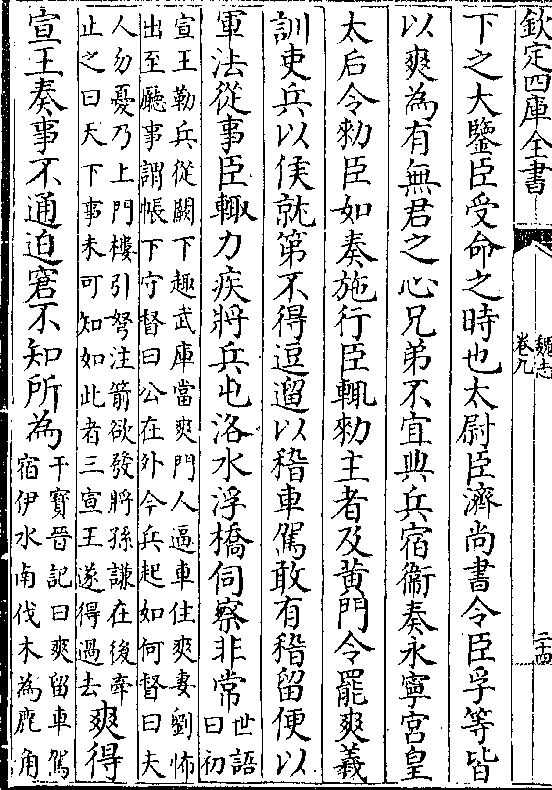 欽定四庫全書
魏志
卷九
二十四
下之大鑒臣受命之時也太尉臣濟尚書令臣孚等皆
以爽為有無君之心兄弟不宜典兵宿衞奏永寧宮皇
太后令勑臣如奏施行臣輒勑主者及黃門令罷爽羲
訓吏兵以侯就第不得逗遛以稽車駕敢有稽留便以
軍法從事臣輙力疾將兵屯洛水浮橋伺察非常
世語
曰初
宣王勒兵從闕下趣武庫當爽門人逼車住爽妻劉怖
出至廳事謂帳下守督曰公在外今兵起如何督曰夫
人勿憂乃上門樓引弩注箭欲發將孫謙在後牽
止之曰天下事未可知如此者三宣王遂得過去
爽得
宣王奏事不通迫窘不知所為
干寶晉記曰爽留車駕
宿伊水南伐木為鹿角